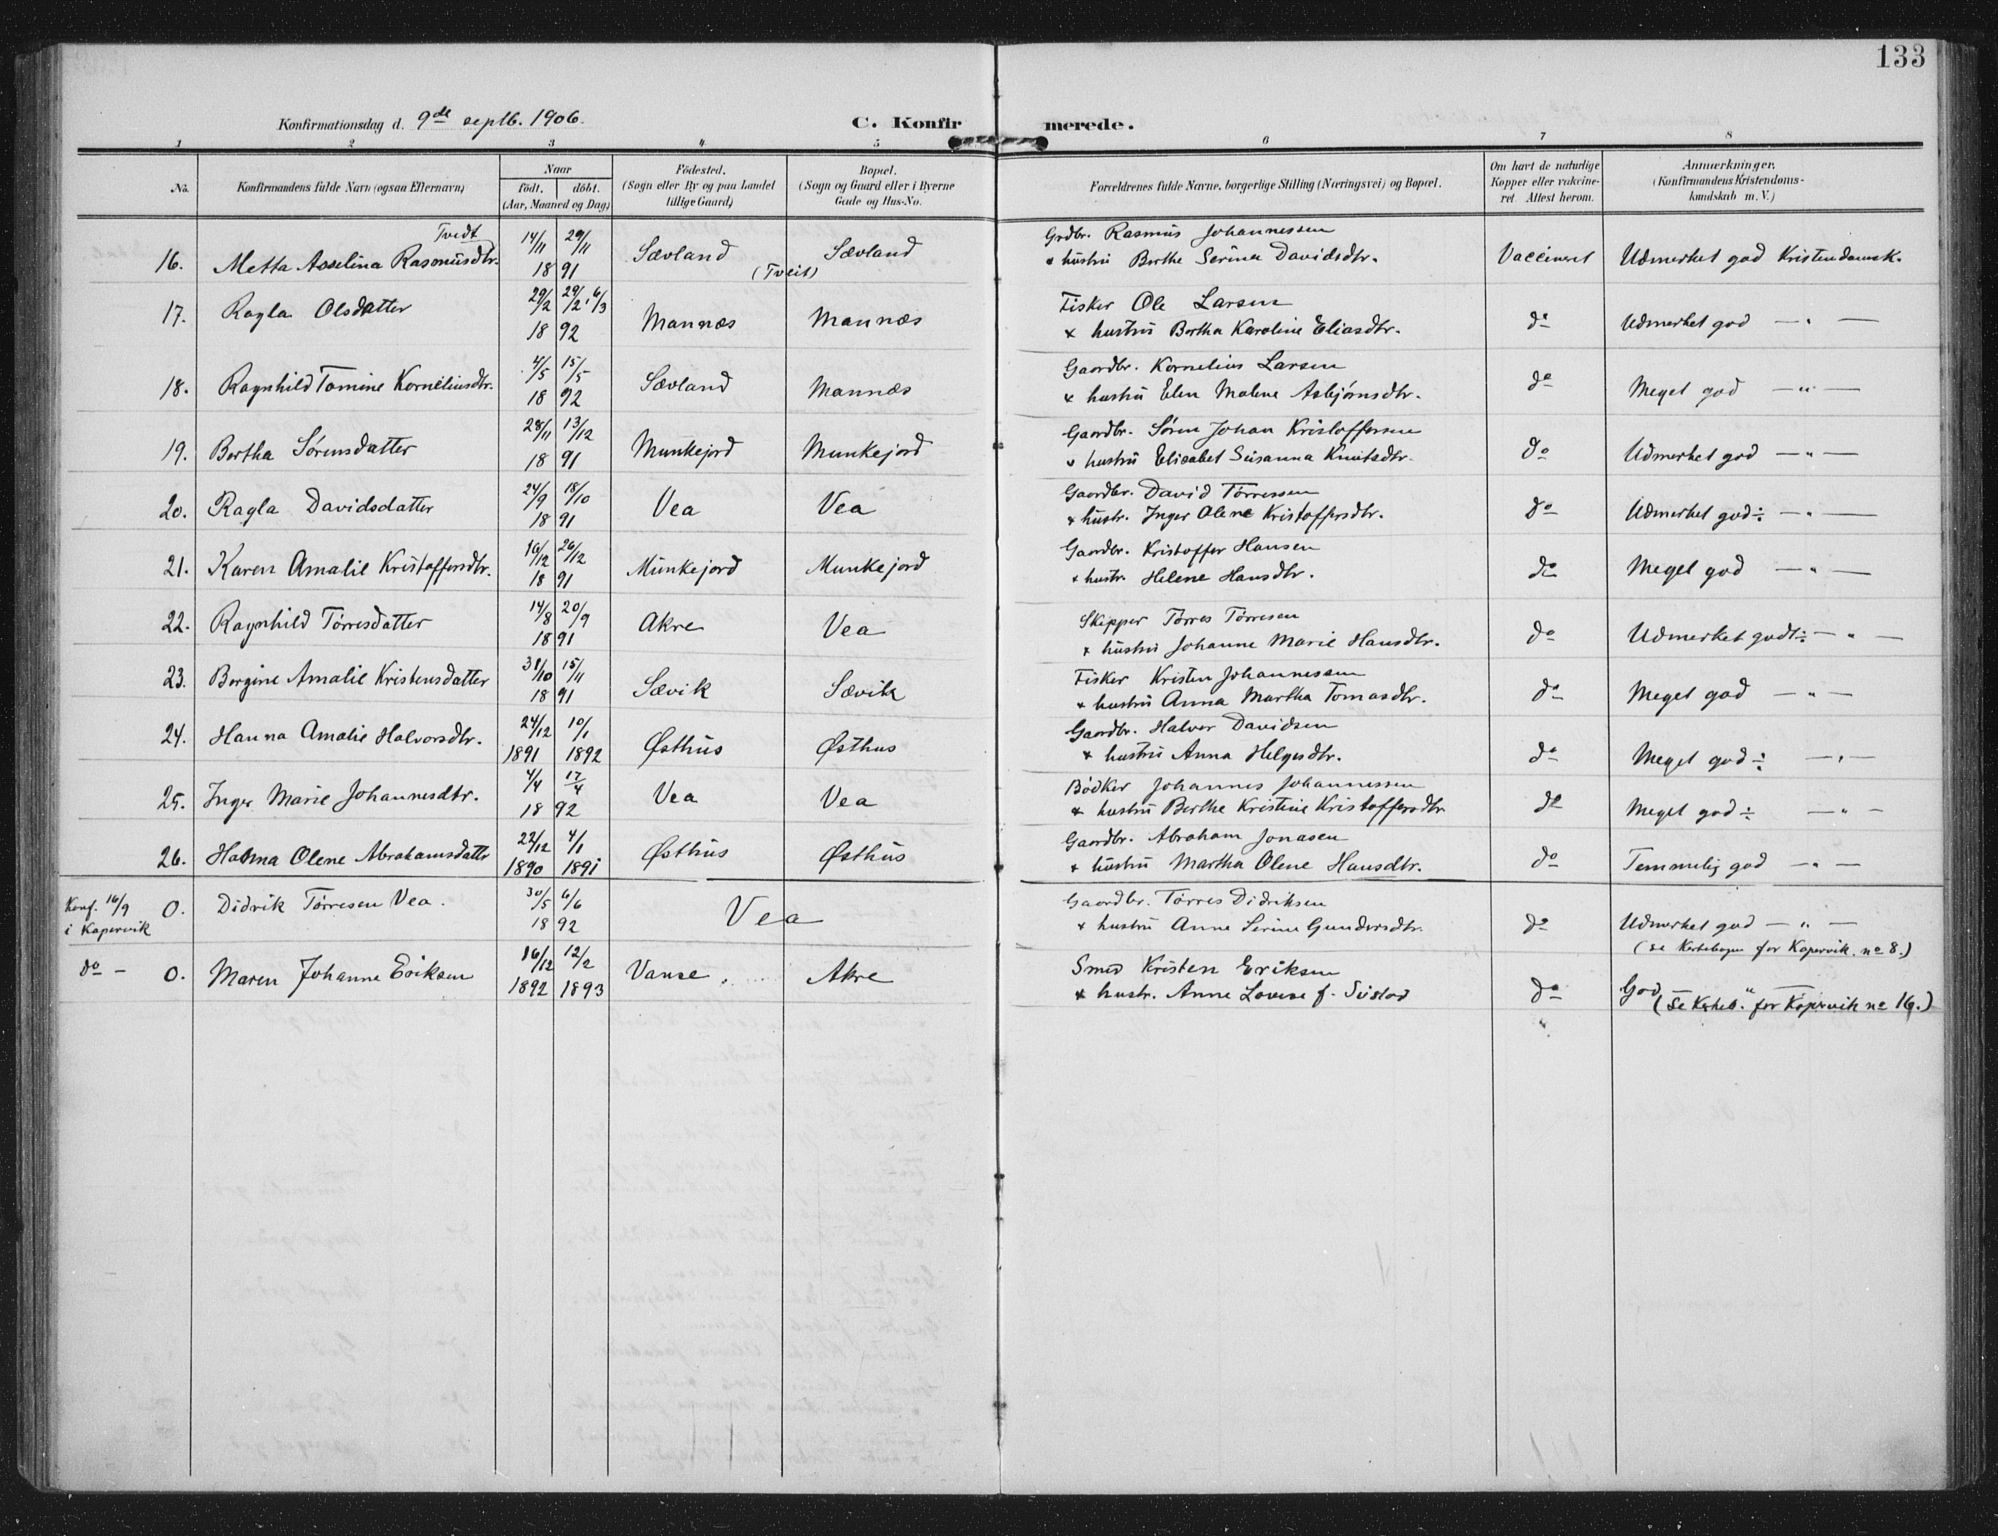 133
Konfirmationsdag d. 9de septb. 1906.
C. Konfirmerede.
1 2 3 4 5 6 7 8
No. Konfirmandens fulde Navn (ogsaa Efternavn) Naar födt. döbt. (Aar, Maaned og Dag) Födested. (Sogn eller By og paa Landet tillige Gaard) Bopæl. (Sogn og Gaard eller i Byerne Gade og Hus-No. Forældrenes fulde Navne, borgerlige Stilling (Næringsvei) og Bopæl. Om havt de naturlige Kopper eller vakcineret Attest herom. Anmærkninger. (Konfirmandens Kristendomskundskab m. V.)
Tvedt 14/11 29/11 Grdbr. Rasmus Johannessen
16. Metta Asselina Rasmusdtr. 18 91 Sævland (Tveit) Sævland & hustru Berthe Serina Davidsdtr. Vaccineret Udmerket god Kristendomsk.
29/2 29/2, 6/3 Fisker Ole Larsen
17. Ragla Olsdatter 18 92 Mannæs Mannæs & hustru Bertha Karoline Eliasdtr. do Udmerket god — " —
4/5 15/5 Gaardbr. Kornelius Larsen
18. Ragnhild Tomine Korneliusdtr. 18 92 Sævland Mannæs & hustru Elen Malene Asbjørnsdtr. do Meget god — " —
28/11 13/12 Gaardbr. Søren Johan Kristoffersen
19. Bertha Sørensdatter 18 91 Munkejord Munkejord & hustru Elisabet Susanna Knutsdtr. do Udmerket god — " —
24/9 18/10 Gaardbr. David Tørressen
20. Ragla Davidsdatter 18 91 Vea Vea & hustr. Inger Olene Kristoffersdtr. do Udmerket god÷ — " —
16/12 26/12 Gaardbr. Kristoffer Hansen
21. Karen Amalie Kristoffersdtr. 18 91 Munkejord Munkejord & hustr. Helene Hansdtr. do Meget god — " —
14/8 20/9 Skipper Tørres Tørresen
22. Ragnhild Tørresdatter 18 91 Akre Vea & hustru Johanne Marie Hansdtr. do Udmerket godt÷ — " —
31/10 15/11 Fisker Kristen Johannessen
23. Bergine Amalie Kristensdatter 18 91 Sævik Sævik & hustru Anna Martha Tomasdtr. do Meget god — " —
24/12 10/1 Gaardbr. Halvor Davidsen
24. Hanna Amalie Halvorsdtr. 1891 1892 Østhus Østhus & hustru Anna Helgesdtr. do Meget god÷ — " —
4/4 17/4 Bødker Johannes Johannessen
25. Inger Marie Johannesdtr. 18 92 Vea Vea & hustru Berthe Kristine Kristoffersdtr do Meget god÷ — " —
22/12 4/1 Gaardbr. Abraham Jonasen
26. Olene Abrahamsdatter 1890 1891 Østhus Østhus & hustru Martha Olene Hansdtr. do Temmelig god — " —
Konf. 16/9 i Kopervik 0. Didrik Tørresen Vea. 30/5 6/6 18 92 Vea Gaardbr. Tørres Didriksen
& hustru Anne Serine Gundersdtr. do Udmerket god — " —
(se Kirkebogen for Kopervik. no 8.)
do — 0. Maren Johanne Eriksen 16/12 12/2 1892 1893 Vanse Akre Smed Kristen Eriksen
& hustr. Anne Lovise f. do God — " —
(se Kirkeb. for Kopervik no 16.)